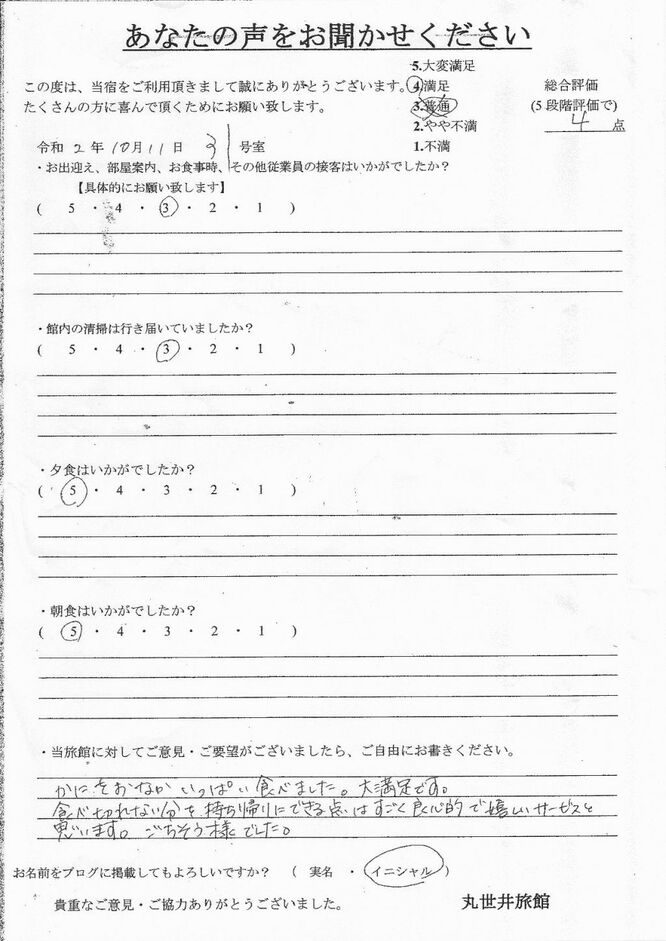 あなたの声をお聞かせください
この度は、当宿をご利用頂きまして誠にありがとうございます。
たくさんの方に喜んで頂くためにお願い致します。
5.大変満足
4.満足
3.普通
2.やや不満
1.不満
総合評価
(5段階評価で)
4 点
令和 2 年 10月 11日 号室
・お出迎え、部屋案内、お食事時、その他従業員の接客はいかがでしたか？
【具体的にお願い致します】
( 5 ・ 4 ・ 3 ・ 2 ・ 1 )
・館内の清掃は行き届いていましたか？
( 5 ・ 4 ・ 3 ・ 2 ・ 1 )
・夕食はいかがでしたか？
( 5 ・ 4 ・ 3 ・ 2 ・ 1 )
・朝食はいかがでしたか？
( 5 ・ 4 ・ 3 ・ 2 ・ 1 )
・当旅館に対してご意見・ご要望がございましたら、ご自由にお書きください。
かにをおなかいっぱい食べました。大満足です。
食べ切れない分を持ち帰りにできる点はすごく良心的で嬉しいサービスと
思います。ごちそう様でした。
お名前をブログに掲載してもよろしいですか？ ( 実名 ・ イニシャル )
貴重なご意見・ご協力ありがとうございました。
丸世井旅館